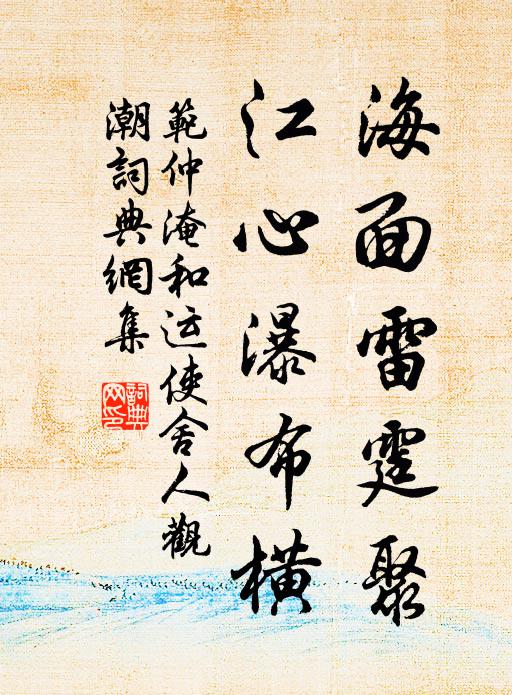 海面雷霆聚
江心瀑布橫
範仲淹和运使舍人觀
潮詞典網集
詞典
网印